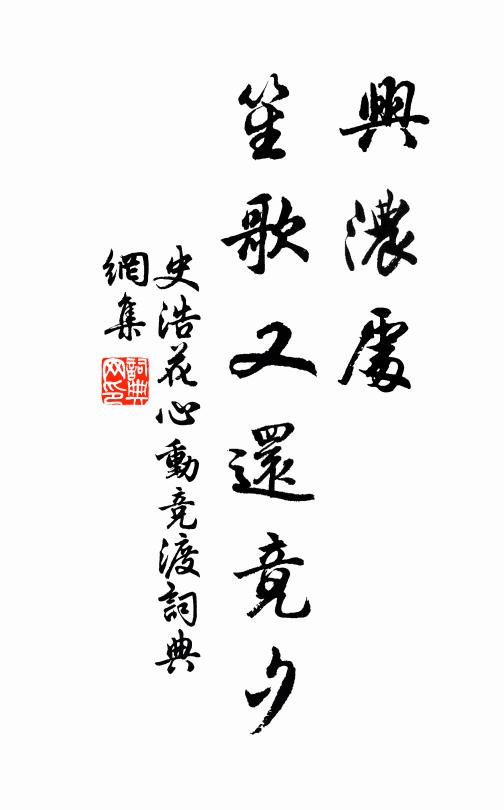 興濃處
笙歌又還竟夕
史浩花心動竞渡詞典
網集
詞典
网印